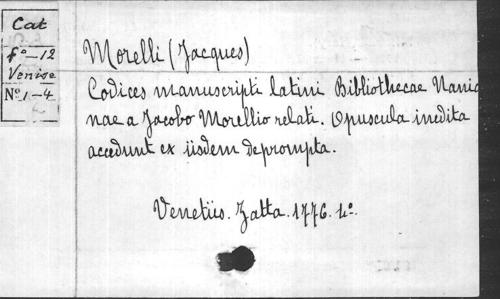 Cat
fº-12
Venise
Nº 1-4
Morelli (Jacques)
Codices manuscripti latini Bibliothecae Nania
nae a Jacobo Morellio relati. Opuscula inedita
accedunt ex iisdem deprompta.
Venetiis. Zatta. 1776. 4º.